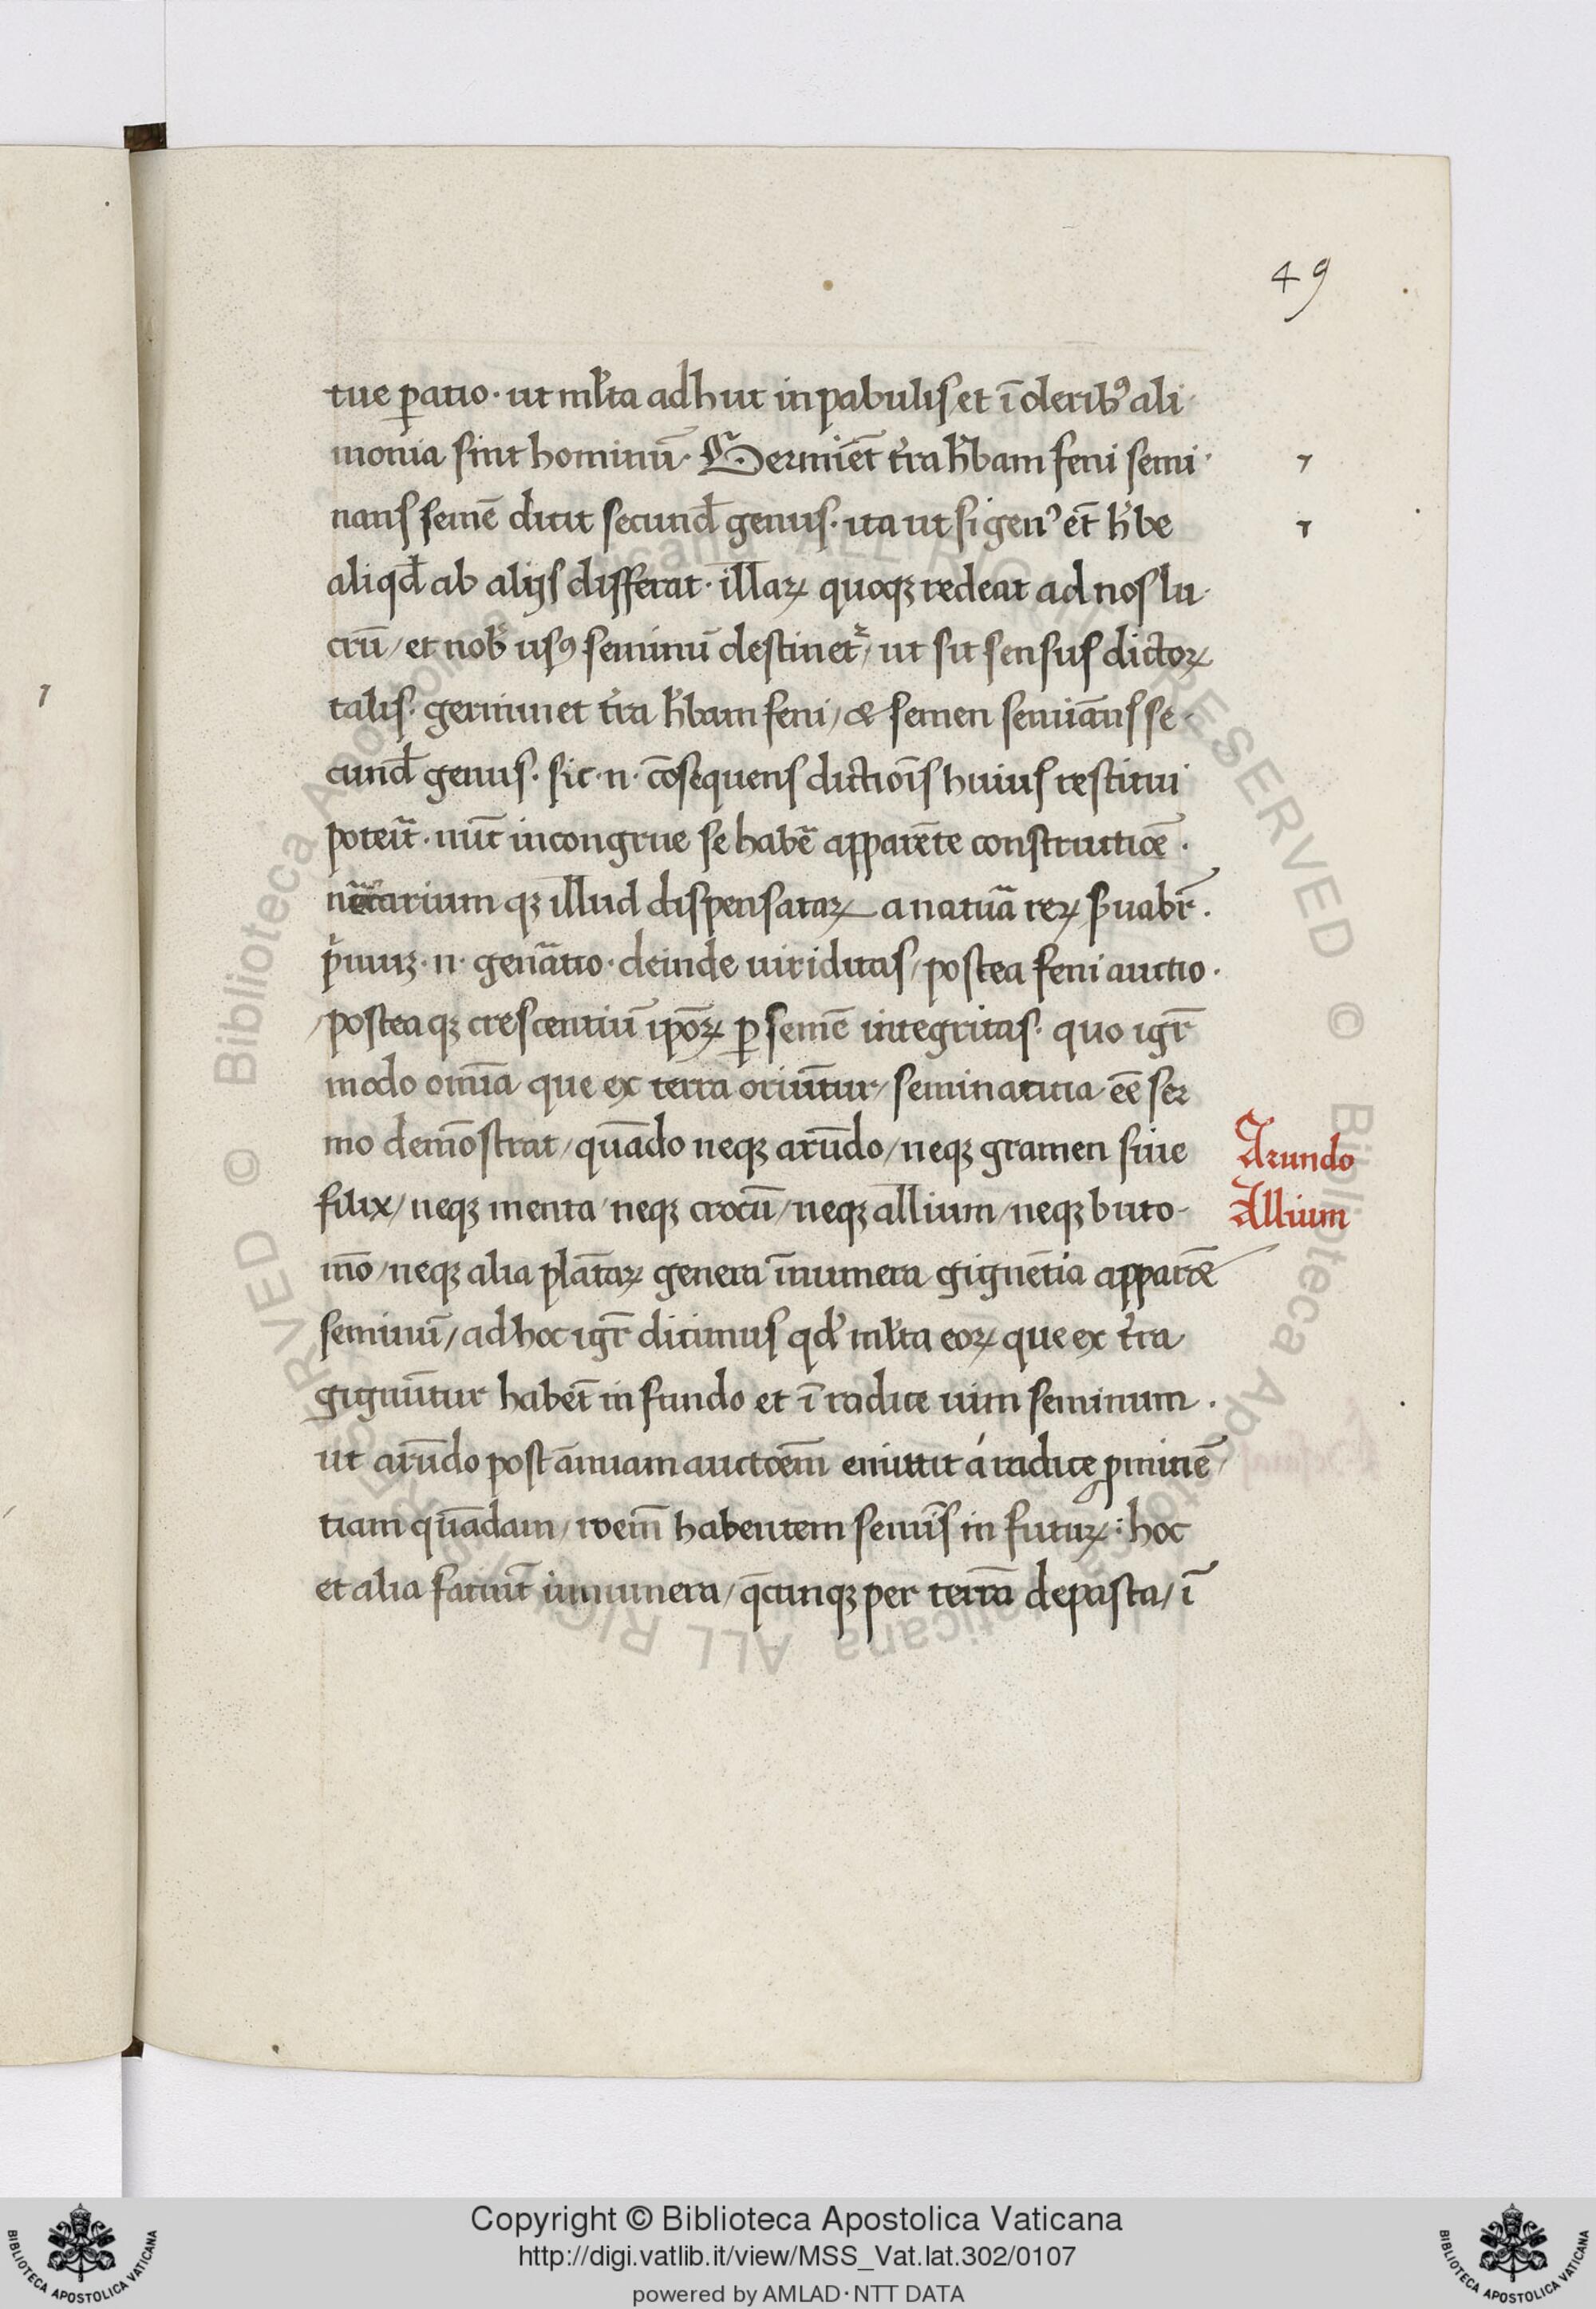 49
tue ꝑatio · ut ml̄ta adhuc in pabulis et ī oleribꝰ ali
monia sint hominū · Germīet t̄ra h̄bam feni semi
nans semē dicit secund̄ genus · ita ut si genꝰ et̄ h̄be
aliqd̄ ab alijs differat · illaꝝ quoqꝫ redeat ad nos lu
crū / et nob̄ usꝰ seminū destinet̄ / ut sit sensus dictoꝝ
talis · germinet t̄ra h̄bam feni / & semen semiāns se
cund̄ genus · sic · n · cōsequens dictiōis huius restitui
poteit̄ · nūc incongrue se habē apparēte constructiōe ·
qꝫ illud dispensataꝝ a natūa reꝝ s̄uabr̄ ·
p̄muꝫ · n · genātio · deinde uiriditas / postea feni auctio ·
/ postea qꝫ crescentiū ip̄oꝝ ꝑ semē integritas · quo igr̄
modo omīa que ex terra oriūtur / seminaticia ēe ser
mo demōstrat / quādo neqꝫ arūdo / neqꝫ gramen siue
filix / neqꝫ menta neqꝫ crocū / neqꝫ allium / neqꝫ buto
mō / neqꝫ alia plātaꝝ genera īnumera gignētia apparōe
seminū / ad hoc igr̄ dicimus qd̄ ml̄ta eoꝝ que ex t̄ra
gignūtur habēt in fundo et ī radice uim seminum ·
ut arūdo post ānuam auctōem̄ emittit á radice ꝓminē
tiam quādam / roem̄ habentem semīs in futuꝝ : hoc
et alia faciūt innumera / q̄cunqꝫ per terrā depasta / ī
Arundo
Allium
Copyright © Biblioteca Apostolica Vaticana
http://digi.vatlib.it/view/MSS_Vat.lat.302/0107
powered by AMLAD · NTT DATA
BIBLIOTECA APOSTOLICA VATICANA
BIBLIOTECA APOSTOLICA VATICANA